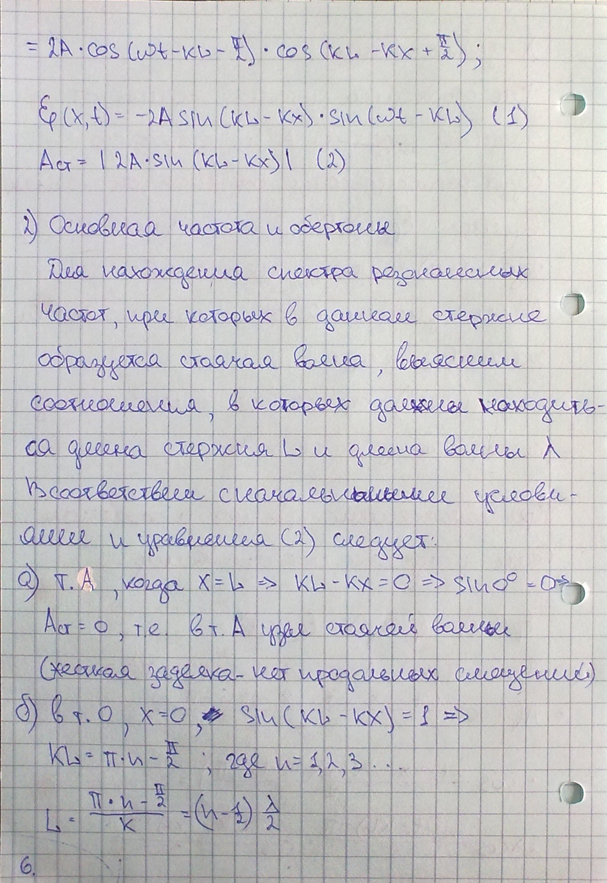 = 2A·cos(ωt-kL-π/2)·cos(kL-kx+π/2);
ξp(x,t) = -2A sin(kL-kx)·sin(ωt-kL) (1)
Aст = |2A·sin(kL-kx)| (2)
2) Основная частота и обертоны
Для нахождения спектра резонансных
частот, при которых в данном стержне
образуется стоячая волна, выясним
соотношения, в которых должны находить-
ся длина стержня L и длина волны λ
В соответствии с начальными услови-
ями и уравнения (2) следует:
а) т. A, когда x=L => kL-kx=0 => sin0°=0=>
Aст=0, т.е. в т. A узел стоячей волны
(жесткая заделка-нет продольных смещений)
б) в т. O, x=0, sin(kL-kx)=1 =>
kL = π·n - π/2 ; где n=1,2,3...
L = (π·n - π/2)/k = (n-1/2) λ/2
6.